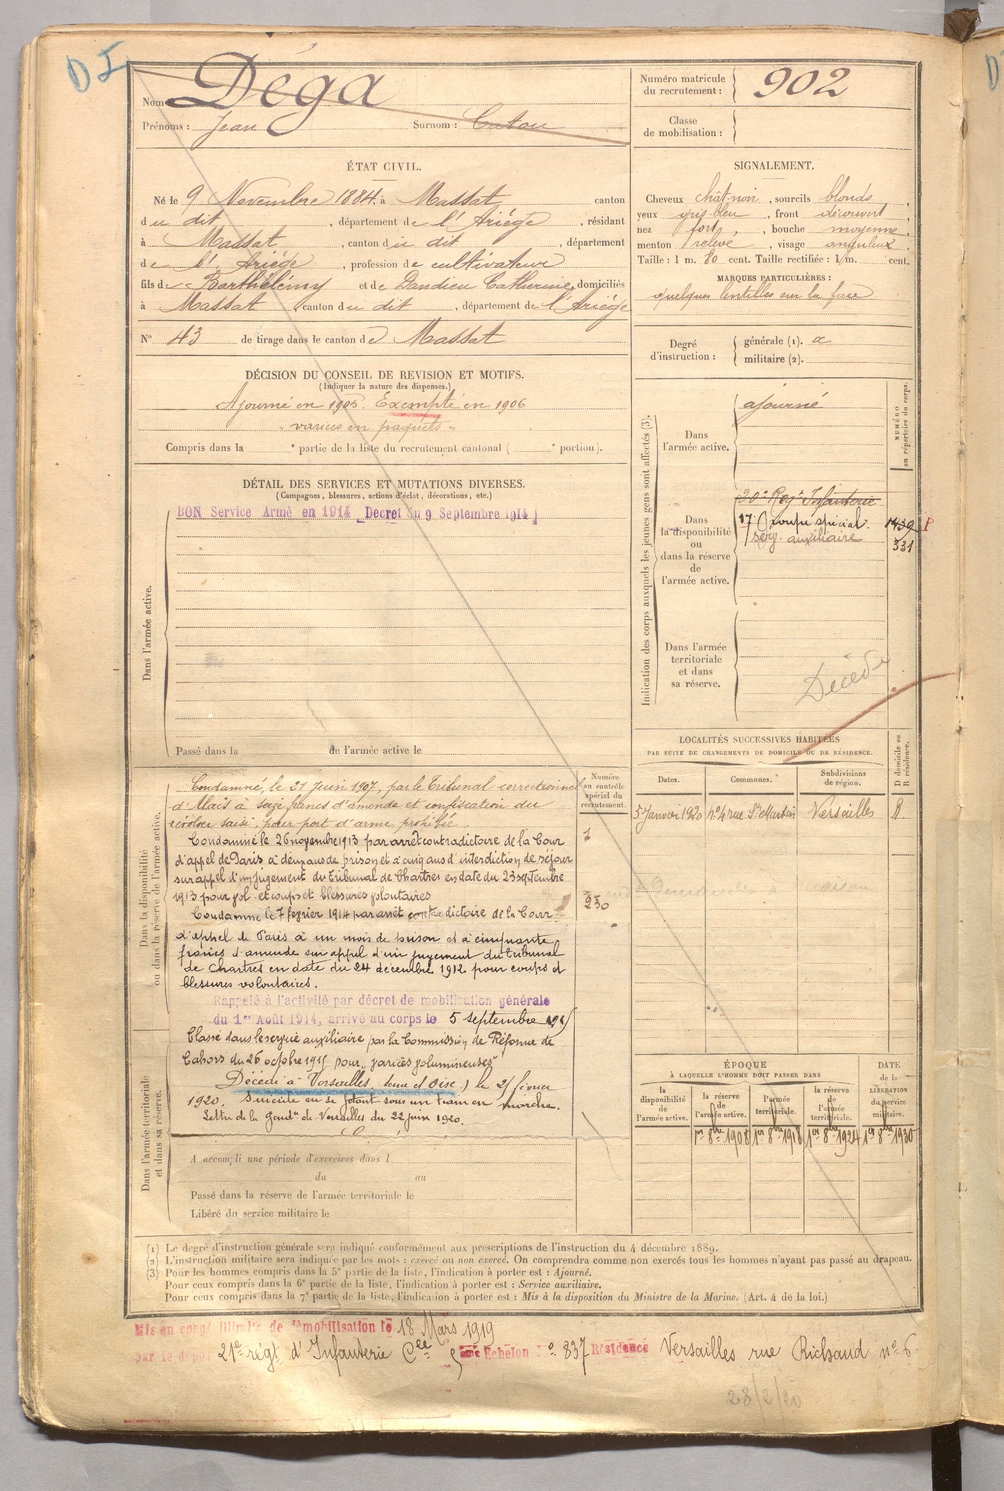 D I
Nom Déga
Prénoms : Jean Surnom : Caton
Numéro matricule du recrutement : 902
Classe de mobilisation :
ÉTAT CIVIL.
Né le 9 Novembre 1884, à Massat, canton
du dit, département de l'Ariège, résidant
à Massat, canton du dit, département
de l'Ariège, profession de cultivateur
fils de Barthélémy et de Dandieu Catherine, domiciliés
à Massat, canton du dit, département de l'Ariège
N° 43 de tirage dans le canton de Massat
SIGNALEMENT.
Cheveux chât-noir, sourcils blonds,
yeux gris-bleu, front découvert,
nez fort, bouche moyenne,
menton relevé, visage anguleux.
Taille : 1 m. 80 cent. Taille rectifiée : 1 m. cent.
MARQUES PARTICULIÈRES :
quelques lentilles sur la face
Degré d'instruction : générale (1). a
militaire (2).
DÉCISION DU CONSEIL DE REVISION ET MOTIFS.
(Indiquer la nature des dispenses.)
Ajourné en 1905. Exempté en 1906
"varices en paquets"
Compris dans la e partie de la liste du recrutement cantonal ( e portion).
DÉTAIL DES SERVICES ET MUTATIONS DIVERSES.
(Campagnes, blessures, actions d'éclat, décorations, etc.)
BON Service Armé en 1914 Decret du 9 Septembre 1914
Dans l'armée active.
Passé dans la de l'armée active le
Indication des corps auxquels les jeunes gens sont affectés (3).
NUMÉRO au répertoire du corps.
Dans l'armée active.
ajourné
Dans la disponibilité ou dans la réserve de l'armée active.
20e Regt Infanterie
17 Groupe spécial. 1439 P
Serv. auxiliaire 331
Dans l'armée territoriale et dans sa réserve.
Décédé
LOCALITÉS SUCCESSIVES HABITÉES
PAR SUITE DE CHANGEMENTS DE DOMICILE OU DE RÉSIDENCE.
D domicile ou R résidence.
Dates. Communes. Subdivisions de région.
5 Janvier 1920 n° 4 rue St Martin Versailles R.
Numéro au contrôle spécial du recrutement.
1
250
Dans la disponibilité ou dans la réserve de l'armée active.
Condamné, le 27 Juin 1907, par le Tribunal correctionnel
d'Alais à seize francs d'amende et confiscation du
révolver saisi, pour port d'arme prohibée.
Condamné le 26 novembre 1913 par arrêt contradictoire de la Cour
d'appel de Paris à deux ans de prison et à cinq ans d'interdiction de séjour
sur appel d'un jugement du Tribunal de Chartres en date du 23 septembre
1913 pour vol et coups et blessures volontaires
Condamné le 7 février 1914 par arrêt contradictoire de la Cour
d'appel de Paris à un mois de prison et à cinquante
francs d'amende sur appel d'un jugement du Tribunal
de Chartres en date du 24 décembre 1912 pour coups et
blessures volontaires.
Rappelé à l'activité par décret de mobilisation générale
du 1er Août 1914, arrivé au corps le 5 septembre
Classé dans le service auxiliaire par la Commission de Réforme de
Cahors du 26 octobre 1915 pour "varices volumineuses"
Décédé à Versailles, Seine et Oise) le 2 février
1920. Suicide en se jetant sous un train en marche.
Lettre de la gendie de Versailles du 22 juin 1920.
Dans l'armée territoriale et dans sa réserve.
A accompli une période d'exercices dans l
du au
Passé dans la réserve de l'armée territoriale le
Libéré du service militaire le
ÉPOQUE
À LAQUELLE L'HOMME DOIT PASSER DANS
la disponibilité de l'armée active. la réserve de l'armée active. l'armée territoriale. la réserve de l'armée territoriale.
DATE de la LIBÉRATION du service militaire.
1er 8bre 1908 1er 8bre 1918 1er 8bre 1924 1er 8bre 1930
(1) Le degré d'instruction générale sera indiqué conformément aux prescriptions de l'instruction du 4 décembre 1889.
(2) L'instruction militaire sera indiquée par les mots : exercé ou non exercé. On comprendra comme non exercés tous les hommes n'ayant pas passé au drapeau.
(3) Pour les hommes compris dans la 5e partie de la liste, l'indication à porter est : Ajourné.
Pour ceux compris dans la 6e partie de la liste, l'indication à porter est : Service auxiliaire.
Pour ceux compris dans la 7e partie de la liste, l'indication à porter est : Mis à la disposition du Ministre de la Marine. (Art. 4 de la loi.)
Mis en congé illimité de démobilisation le 18 Mars 1919
par le dépôt 21e régt d'Infanterie Cee 5ème Echelon n° 837 Résidence Versailles rue Richaud n° 6
28/2/20